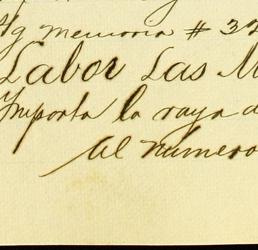 Memoria # 32
Labor Las M
Importa la raya d
Al número